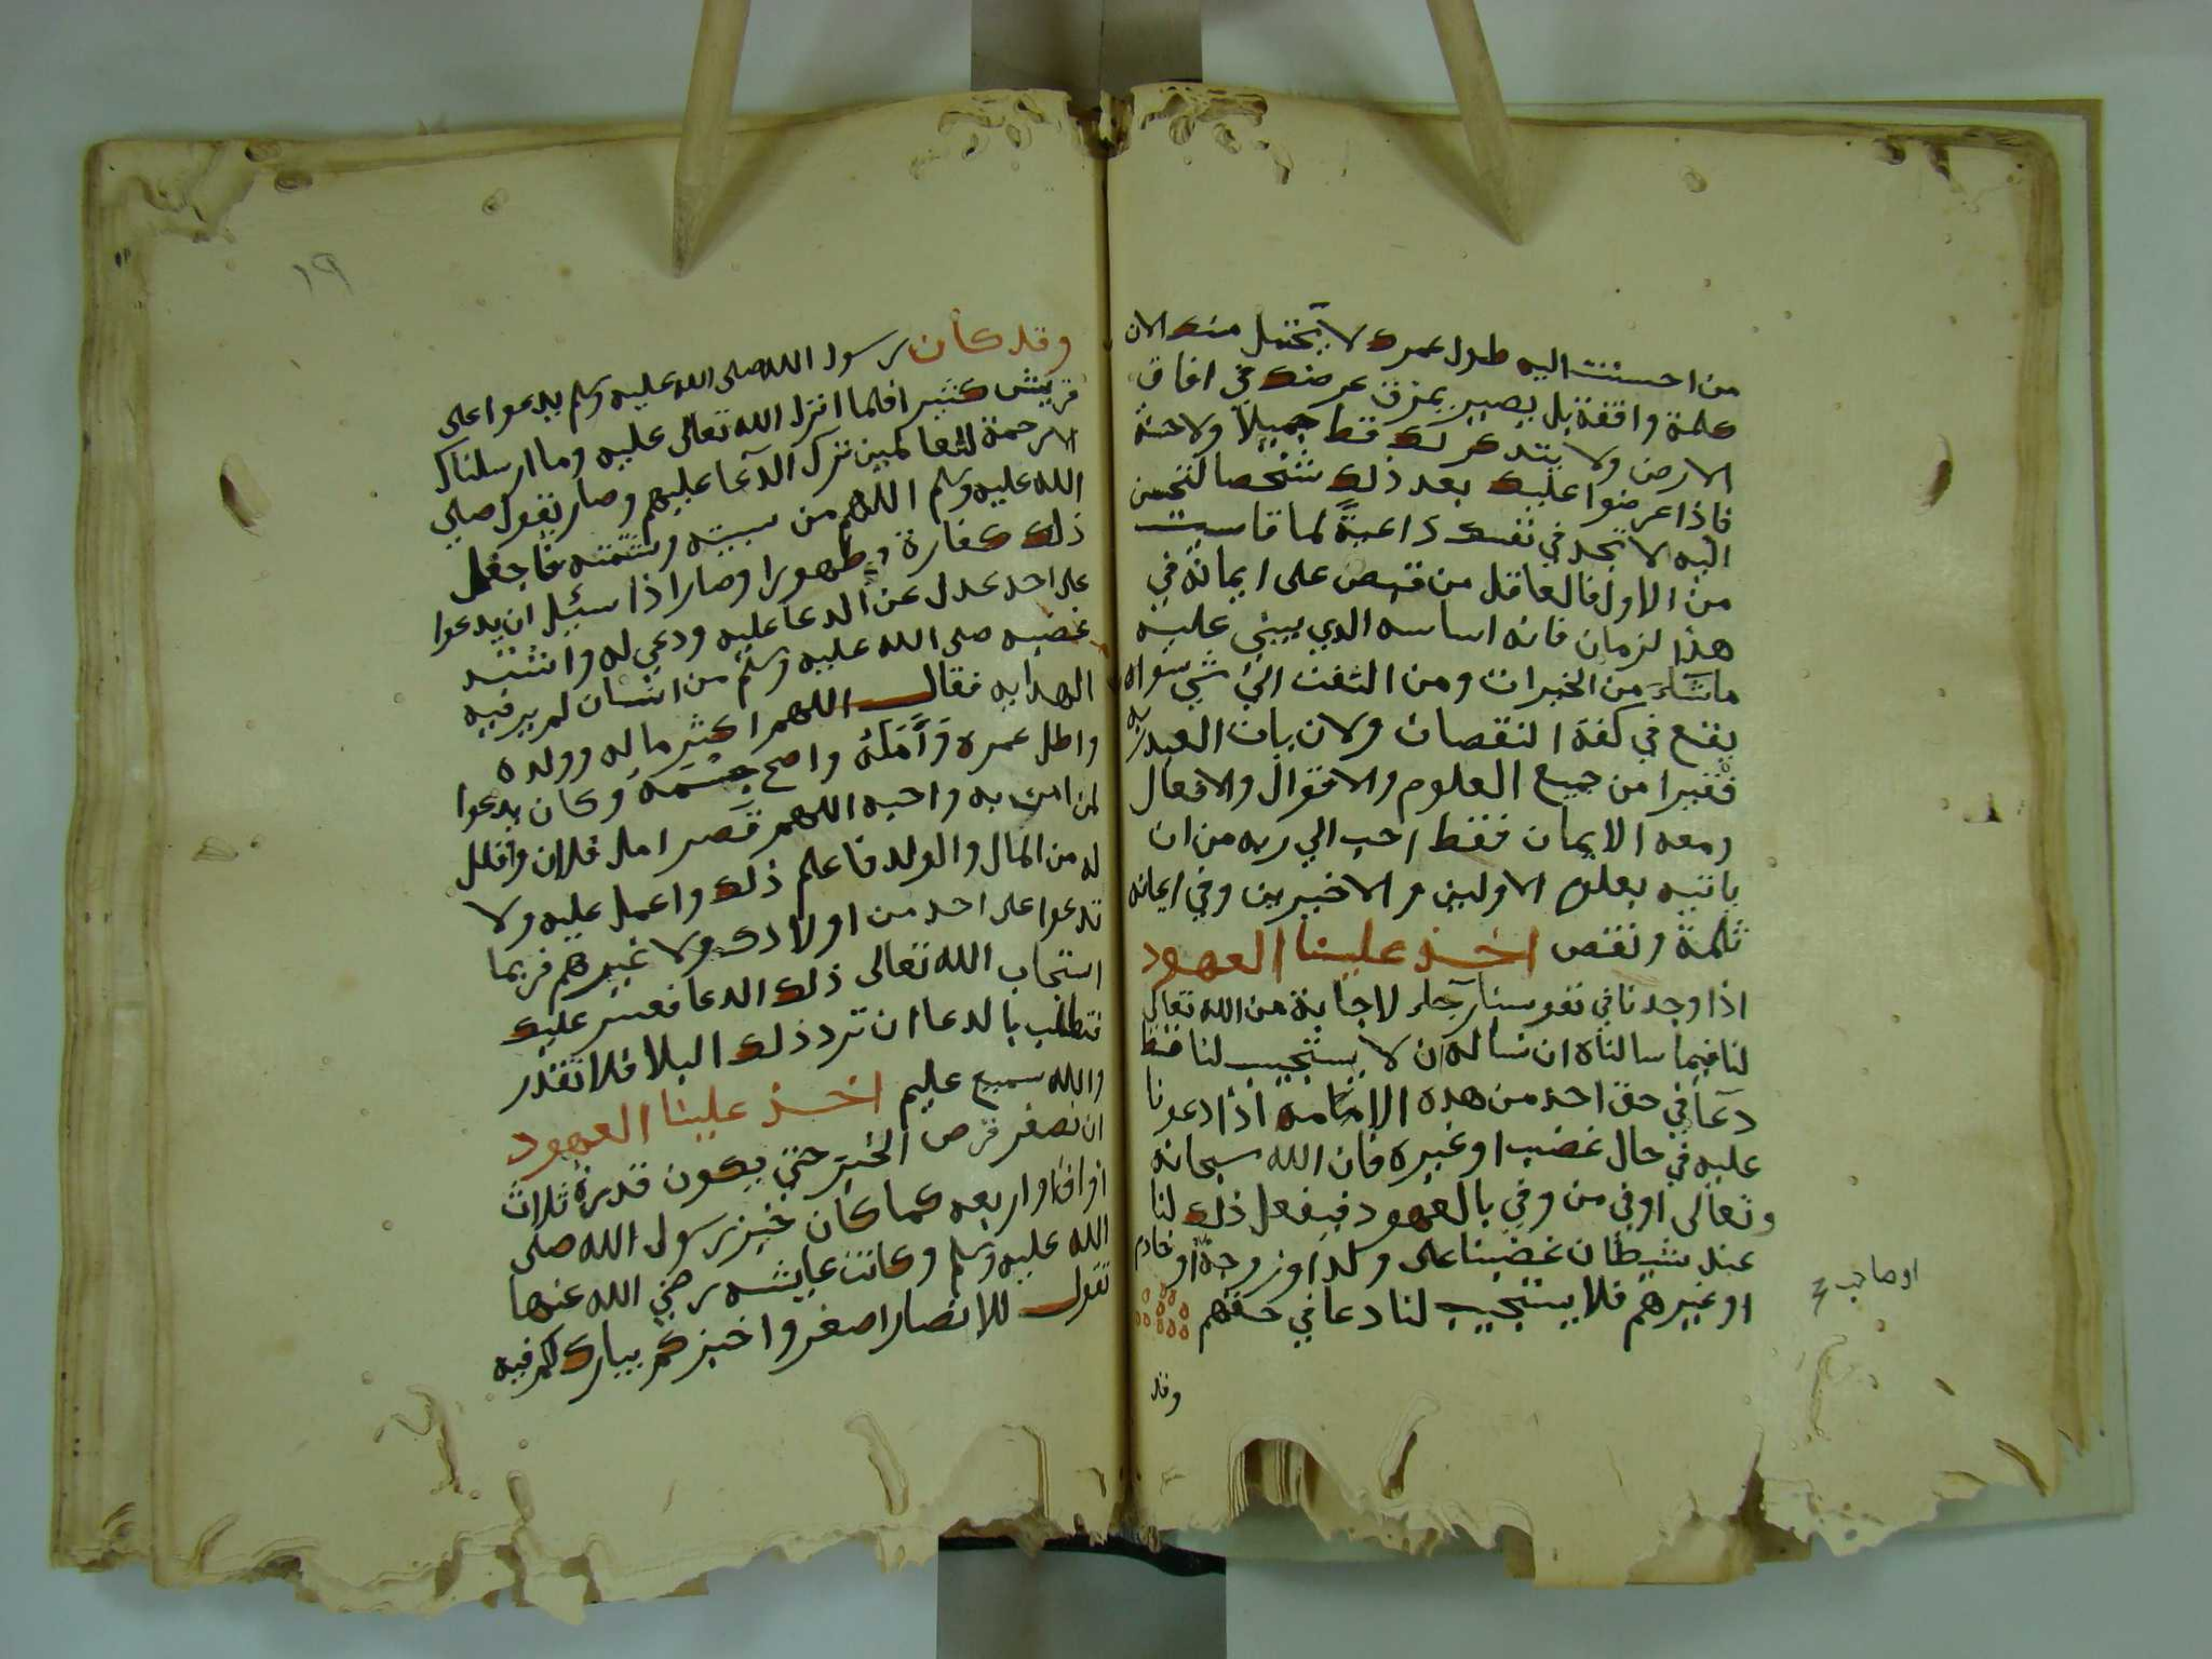 من احسنت اليه طول عمرك لا يحتمل منك الان
كلمة واقفة بل يصير يمزق عرضك في افاق
الارض ولا يتذكر لك قط جميلا ولا حسنة
فاذا عرضوا عليك بعد ذلك شخصا لتحسن
اليه لا تجد في نفسك داعية لما قاسيت
من الاول فالعاقل من قبض على ايمانه في
هذا لزمان فانه اساسه الدي يبني عليه
ماشاء من الخيرات ومن التفت الي شي سواه
يقع في كفة النقصان ولان يات العبد ربه
فقيرا من جميع العلوم والاقوال والافعال
ومعه الايمان فقط احب الي ربه من ان
ياتيه بعلوم الاولين والاخيرين وفي ايمانه
ثلمة ونقص اخذ علينا العهود
اذا وجدنا في نفوسنا رجاء لاجابة من الله تعالى
لنا فيما سالناه ان نساله ان لا يستجيب لنا قط
دعا في حق احد من هذه الامة اذا دعونا
عليه في حال غضب او غيره فان الله سبحانه
وتعالى اوفي من وفي بالعهود فيفعل ذلك لنا
عند شيطان غضبنا على ولد او زوجة او خادم
او صاحب
او غيرهم فلا يستجيب لنا دعا في حقهم
وقد
١٩
وقد كان رسول الله صلى الله عليه وسلم يدعوا على
قريش كثيرا فلما انزل الله تعالى عليه وما ارسلناك
الا رحمة للعالمين ترك الدعا عليهم وصار يقول صلي
الله عليه وسلم اللهم من سببته وشتمته فاجعل
ذلك كفارة وطهورا وصار اذا سئل ان يدعوا
على احد عدل عن الدعا عليه ودعي له واشتد
غضبه صلى الله عليه وسلم من انسان لم ير فيه
الهدايه فقال اللهم اكثر ماله وولده
واطل عمره وامله واصح جسمه وكان يدعوا
لمن امن به واحبه اللهم قصر امل فلان واقلل
له من المال والولد فاعلم ذلك واعمل عليه ولا
تدعوا على احد من اولادك ولا غيرهم فربما
استجاب الله تعالى ذلك الدعا فعسر عليك
فتطلب بالدعا ان ترد ذلك البلا فلا تقدر
والله سميع عليم اخذ علينا العهود
ان نصغر قرص الخبز حتي يكون قدره ثلاث
اواق او اربعه كما كان خبز رسول الله صلى
الله عليه وسلم وكانت عايشه رضي الله عنها
تقول للانصار اصغروا خبزكم يبارك لكم فيه